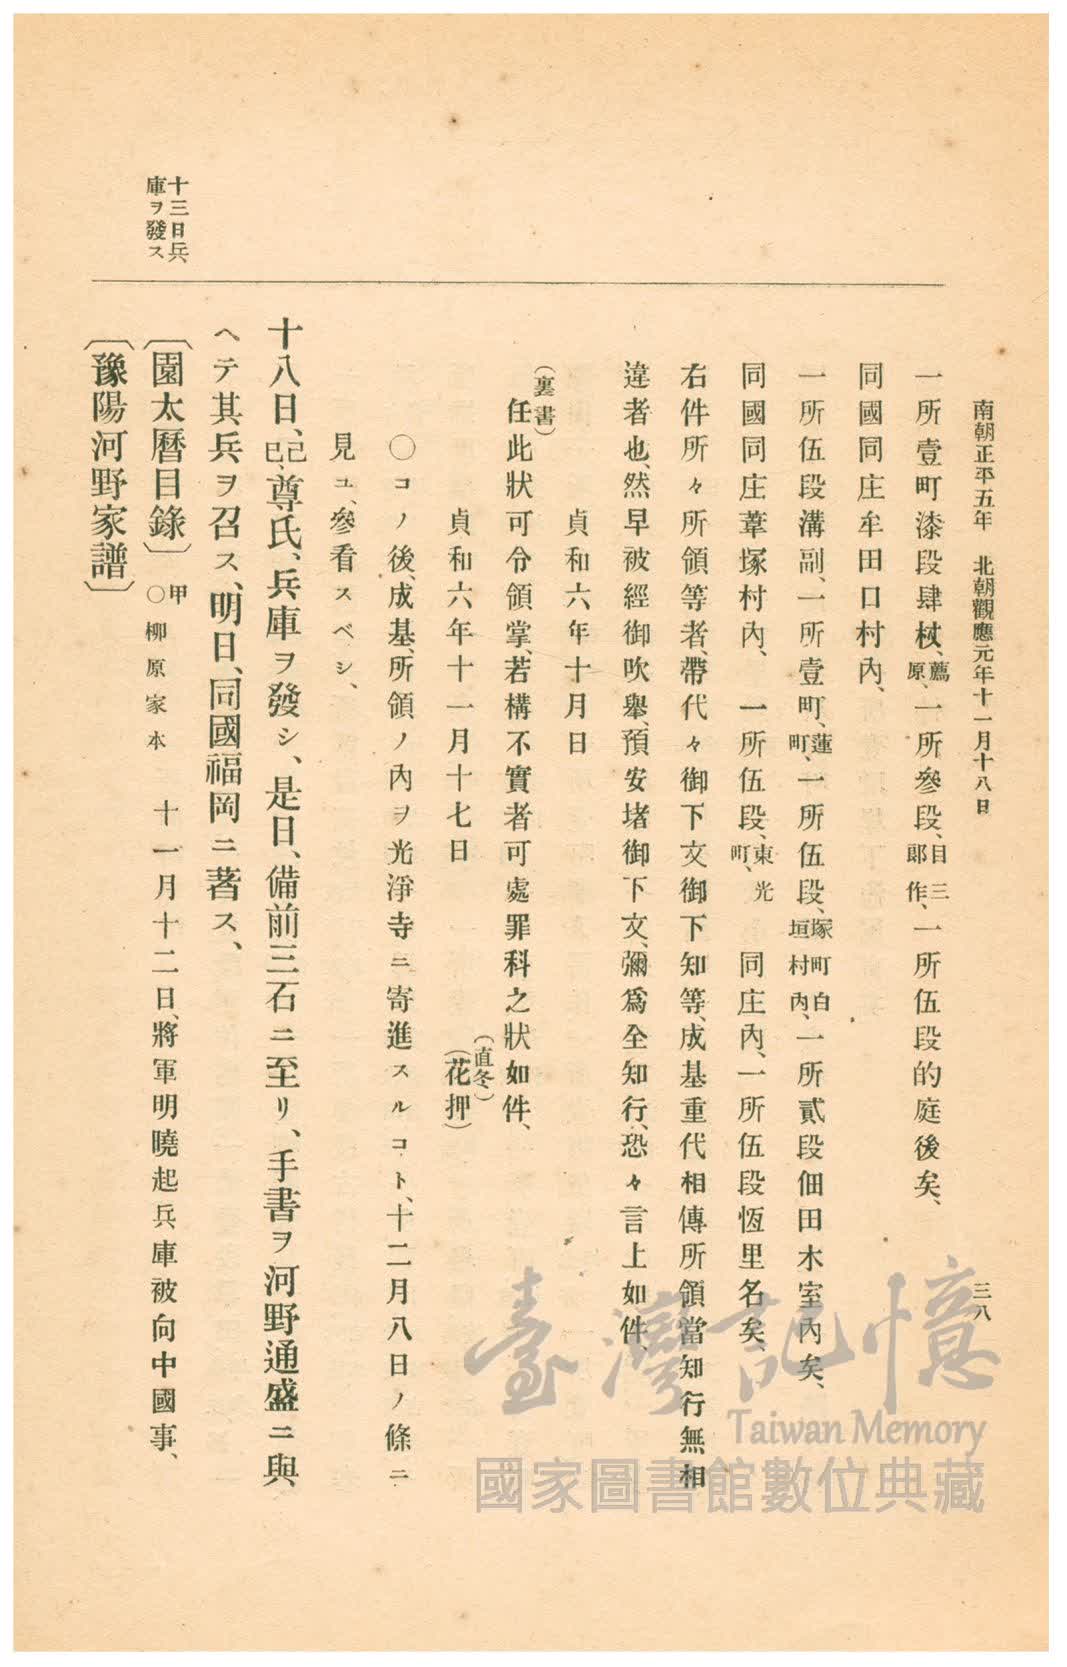 南朝正平五年　北朝觀應元年十一月十八日
三八
一所壹町漆段肆杖、薦原、一所參段、目三郎作、一所伍段的庭後矣、
同國同庄牟田口村內、
一所伍段溝副、一所壹町、蓮町、一所伍段、塚町白垣村內、一所貳段佃田木室內矣、
同國同庄葦塚村內、一所伍段、東光町、同庄內、一所伍段恆里名矣、
右件所々所領等者、帶代々御下文御下知等、成基重代相傳所領當知行無相
違者也、然早被經御吹舉、預安堵御下文、彌爲全知行、恐々言上如件、
貞和六年十月日
（裏書）
任此狀可令領掌、若構不實者可處罪科之狀如件、
貞和六年十一月十七日
（直冬）
（花押）
〇コノ後、成基、所領ノ內ヲ光淨寺ニ寄進スルコト、十二月八日ノ條ニ
見ユ、參看スベシ、
十八日、己巳、尊氏、兵庫ヲ發シ、是日、備前三石ニ至リ、手書ヲ河野通盛ニ與
ヘテ其兵ヲ召ス、明日、同國福岡ニ著ス、
十三日兵
庫ヲ發ス
〔園太曆目錄〕甲〇柳原家本　十一月十二日、將軍明曉起兵庫被向中國事、
〔豫陽河野家譜〕
臺灣記憶
Taiwan Memory
國家圖書館數位典藏